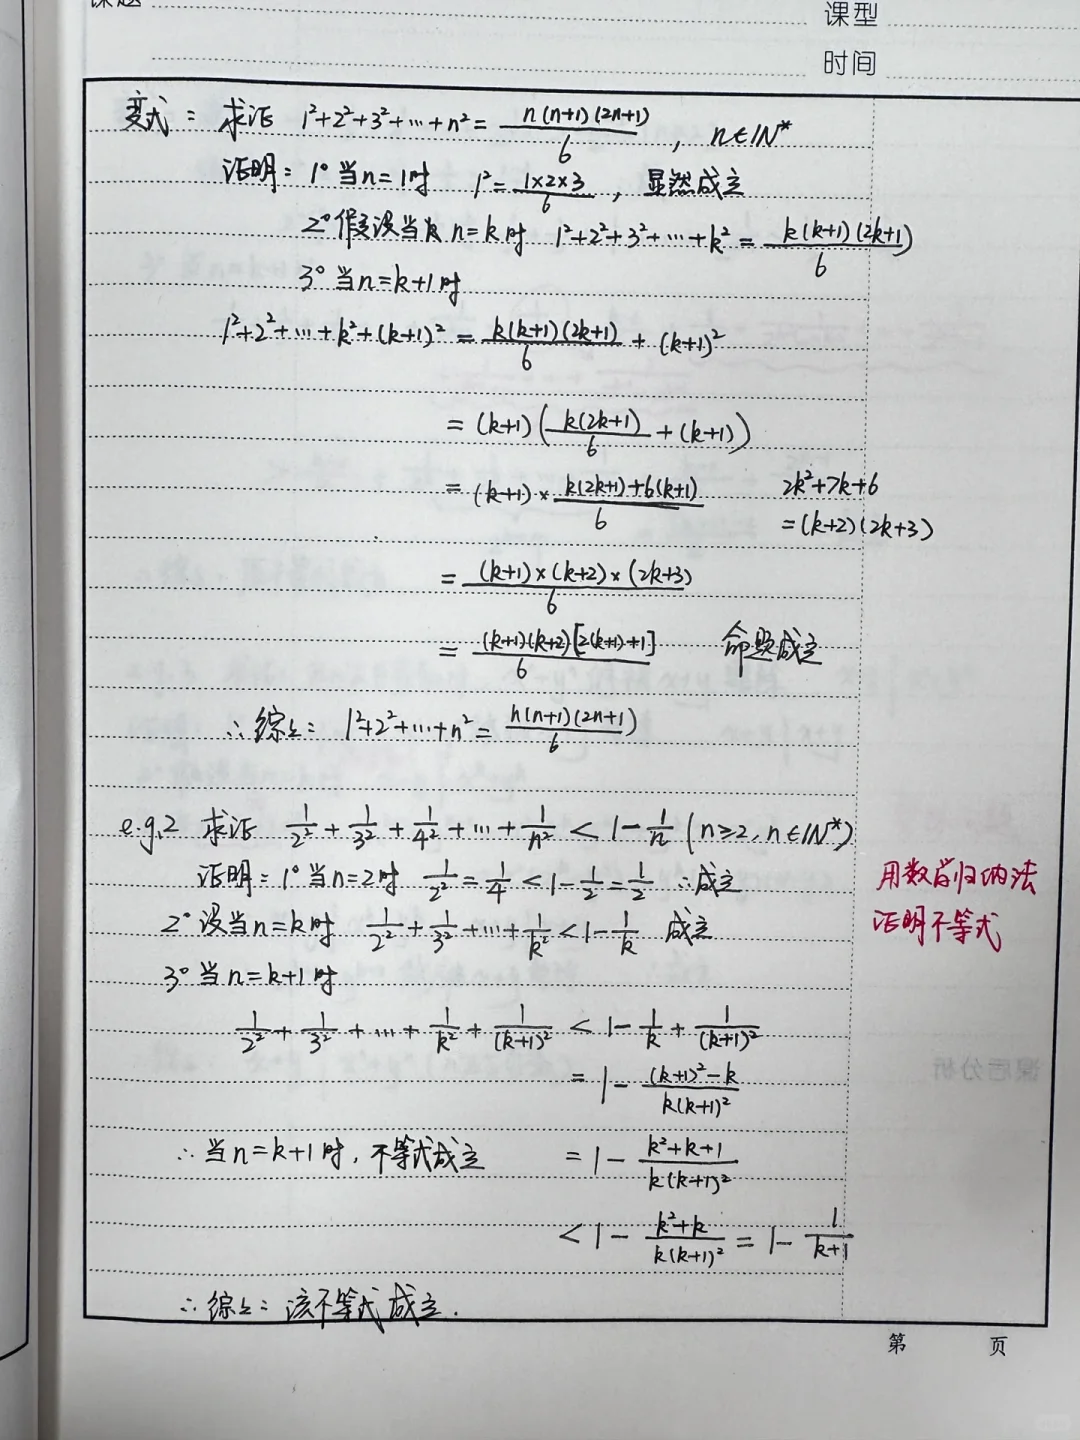 课型
时间
变式：求证 1²+2²+3²+⋯+n² = n(n+1)(2n+1)/6 ，n∈N*
证明：1° 当n=1时 1² = 1×2×3/6 ，显然成立
2° 假设当 n=k时 1²+2²+3²+⋯+k² = k(k+1)(2k+1)/6
3° 当n=k+1时
1²+2²+⋯+k²+(k+1)² = k(k+1)(2k+1)/6 + (k+1)²
= (k+1)(k(2k+1)/6 + (k+1))
= (k+1)× k(2k+1)+6(k+1)/6 2k²+7k+6
=(k+2)(2k+3)
= (k+1)×(k+2)×(2k+3)/6
= (k+1)(k+2)[2(k+1)+1]/6 命题成立
∴综上：1²+2²+⋯+n² = n(n+1)(2n+1)/6
e.g.2 求证 1/2² + 1/3² + 1/4² + ⋯ + 1/n² < 1 - 1/n (n≥2, n∈N*)
证明：1° 当n=2时 1/2² = 1/4 < 1 - 1/2 = 1/2 ∴成立
用数学归纳法
2° 设当n=k时 1/2² + 1/3² + ⋯ + 1/k² < 1 - 1/k 成立
证明不等式
3° 当n=k+1时
1/2² + 1/3² + ⋯ + 1/k² + 1/(k+1)² < 1 - 1/k + 1/(k+1)²
= 1 - (k+1)²-k/k(k+1)²
∴当n=k+1时，不等式成立 = 1 - k²+k+1/k(k+1)²
< 1 - k²+k/k(k+1)² = 1 - 1/k+1
∴综上：该不等式成立.
第 页